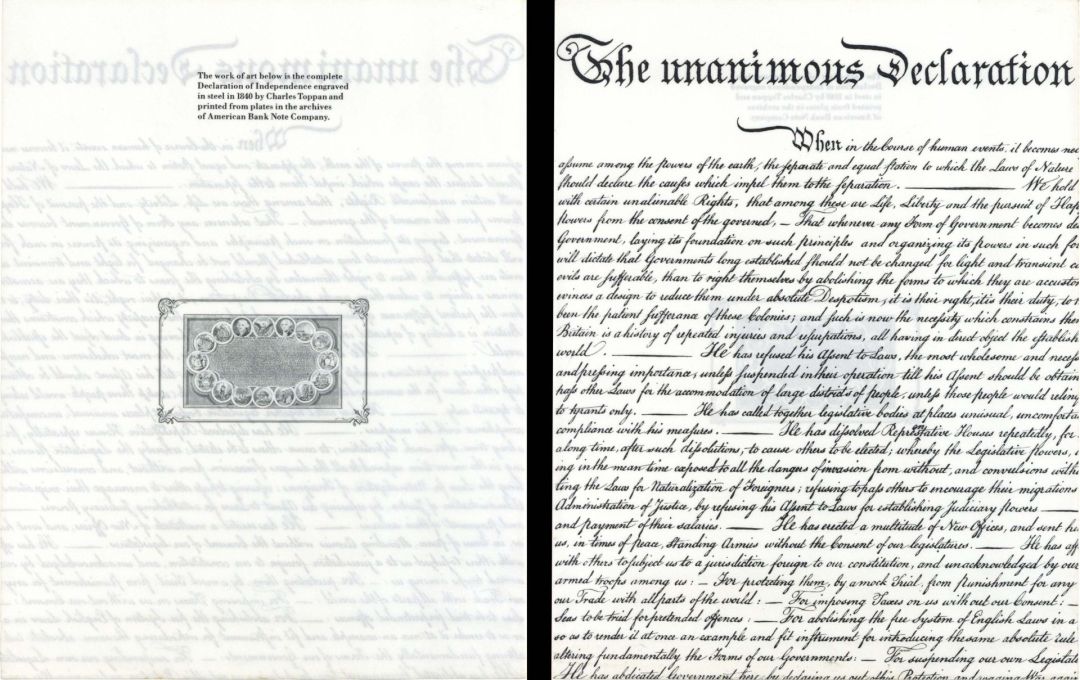 The work of art below is the complete
Declaration of Independence engraved
in steel in 1840 by Charles Toppan and
printed from plates in the archives
of American Bank Note Company.
The unanimous Declaration
When in the Course of human events, it becomes nec
assume among the powers of the earth, the separate and equal station to which the Laws of Nature
should declare the causes which impel them to the separation. ——— We hold
with certain unalienable Rights, that among these are Life, Liberty and the pursuit of Hap
powers from the consent of the governed, — That whenever any Form of Government becomes de
Government, laying its foundation on such principles and organizing its powers in such for
will dictate that Governments long established should not be changed for light and transient ca
evils are sufferable, than to right themselves by abolishing the forms to which they are accustom
evinces a design to reduce them under absolute Despotism, it is their right, it is their duty, to t
been the patient sufferance of these Colonies; and such is now the necessity which constrains them
Britain is a history of repeated injuries and usurpations, all having in direct object the establish
world. ——— He has refused his Assent to Laws, the most wholesome and necess
and pressing importance, unless suspended in their operation till his Assent should be obtain
pass other Laws for the accommodation of large districts of people, unless those people would relinq
to tyrants only. ——— He has called together legislative bodies at places unusual, uncomforta
compliance with his measures. ——— He has dissolved Representative Houses repeatedly, for
along time, after such dissolutions, to cause others to be elected; whereby the Legislative powers, i
ing in the mean time exposed to all the dangers of invasion from without, and convulsions withi
ting the Laws for Naturalization of Foreigners; refusing to pass others to encourage their migrations
Administration of Justice, by refusing his Assent to Laws for establishing Judiciary powers ———
and payment of their salaries. ——— He has erected a multitude of New Offices, and sent hi
us, in times of peace, Standing Armies without the Consent of our legislatures. ——— He has aff
with others to subject us to a jurisdiction foreign to our constitution, and unacknowledged by our
armed troops among us: — For protecting them, by a mock Trial, from Punishment for any
our Trade with all parts of the world: — For imposing Taxes on us without our Consent: —
Seas to be tried for pretended offences: — For abolishing the free System of English Laws in a
so as to render it at once an example and fit instrument for introducing the same absolute rule
altering fundamentally the Forms of our Governments: — For suspending our own Legislatu
He has abdicated Government here, by declaring us out of his Protection and waging War again